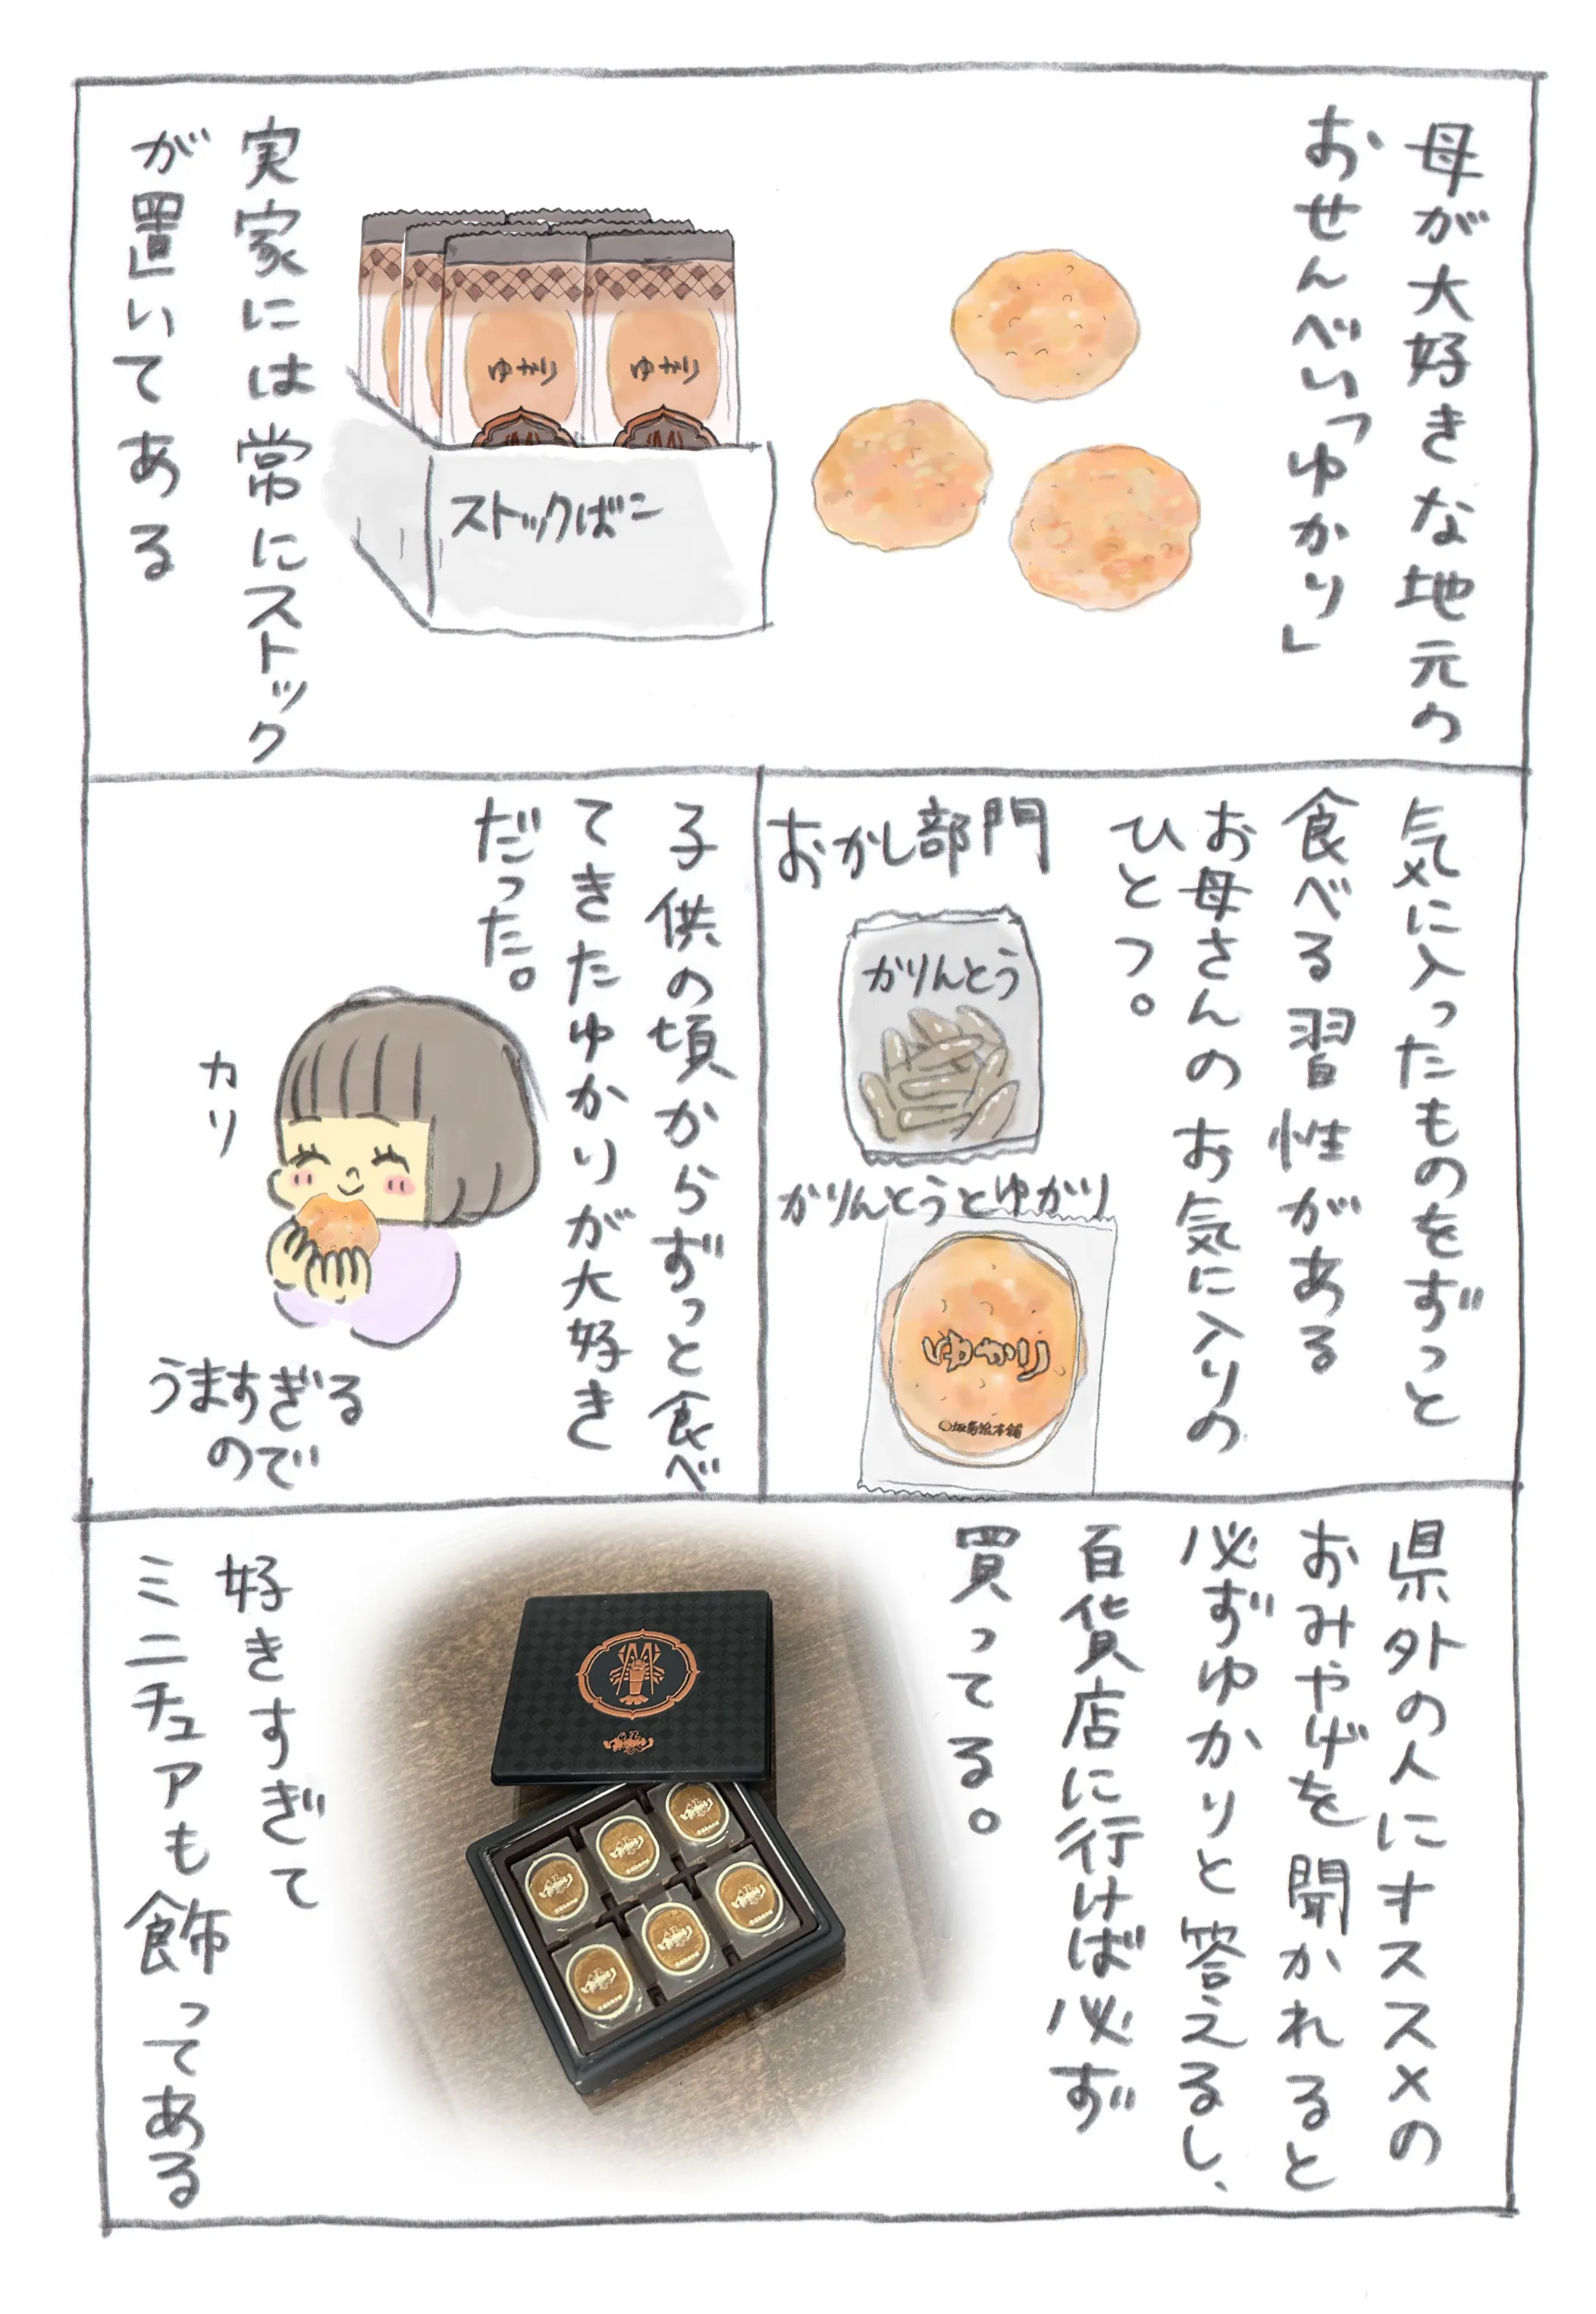 母が大好きな地元の
おせんべい「ゆかり」
ゆかり
ゆかり
ストックばこ
実家には常にストック
が置いてある
気に入ったものをずっと
食べる習性がある
お母さんのお気に入りの
ひとつ。
おかし部門
かりんとう
かりんとうとゆかり
ゆかり
坂角総本舖
子供の頃からずっと食べ
てきたゆかりが大好き
だった。
カリ
うますぎる
ので
県外の人にオススメの
おみやげを聞かれると
必ずゆかりと答えるし、
百貨店に行けば必ず
買ってる。
好きすぎて
ミニチュアも飾ってある